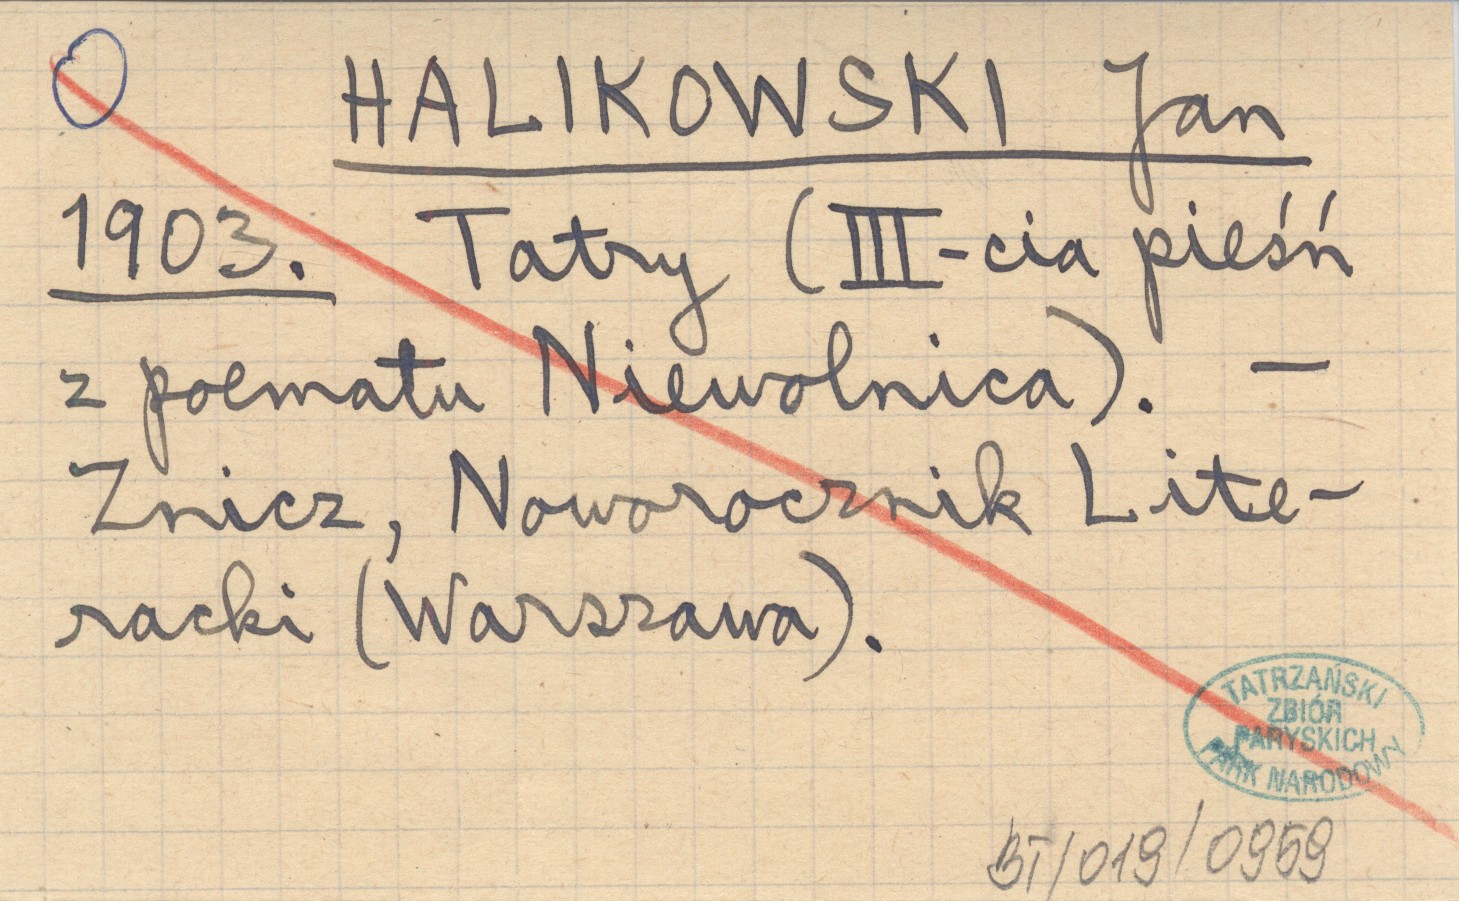 HALIKOWSKI Jan
1903. Tatry (III-cia pieśń
z poematu Niewolnica). —
Znicz, Noworocznik Lite-
racki (Warszawa).
TATRZAŃSKI
ZBIÓR
PARYSKICH
PARK NARODOWY
BT/019/0959